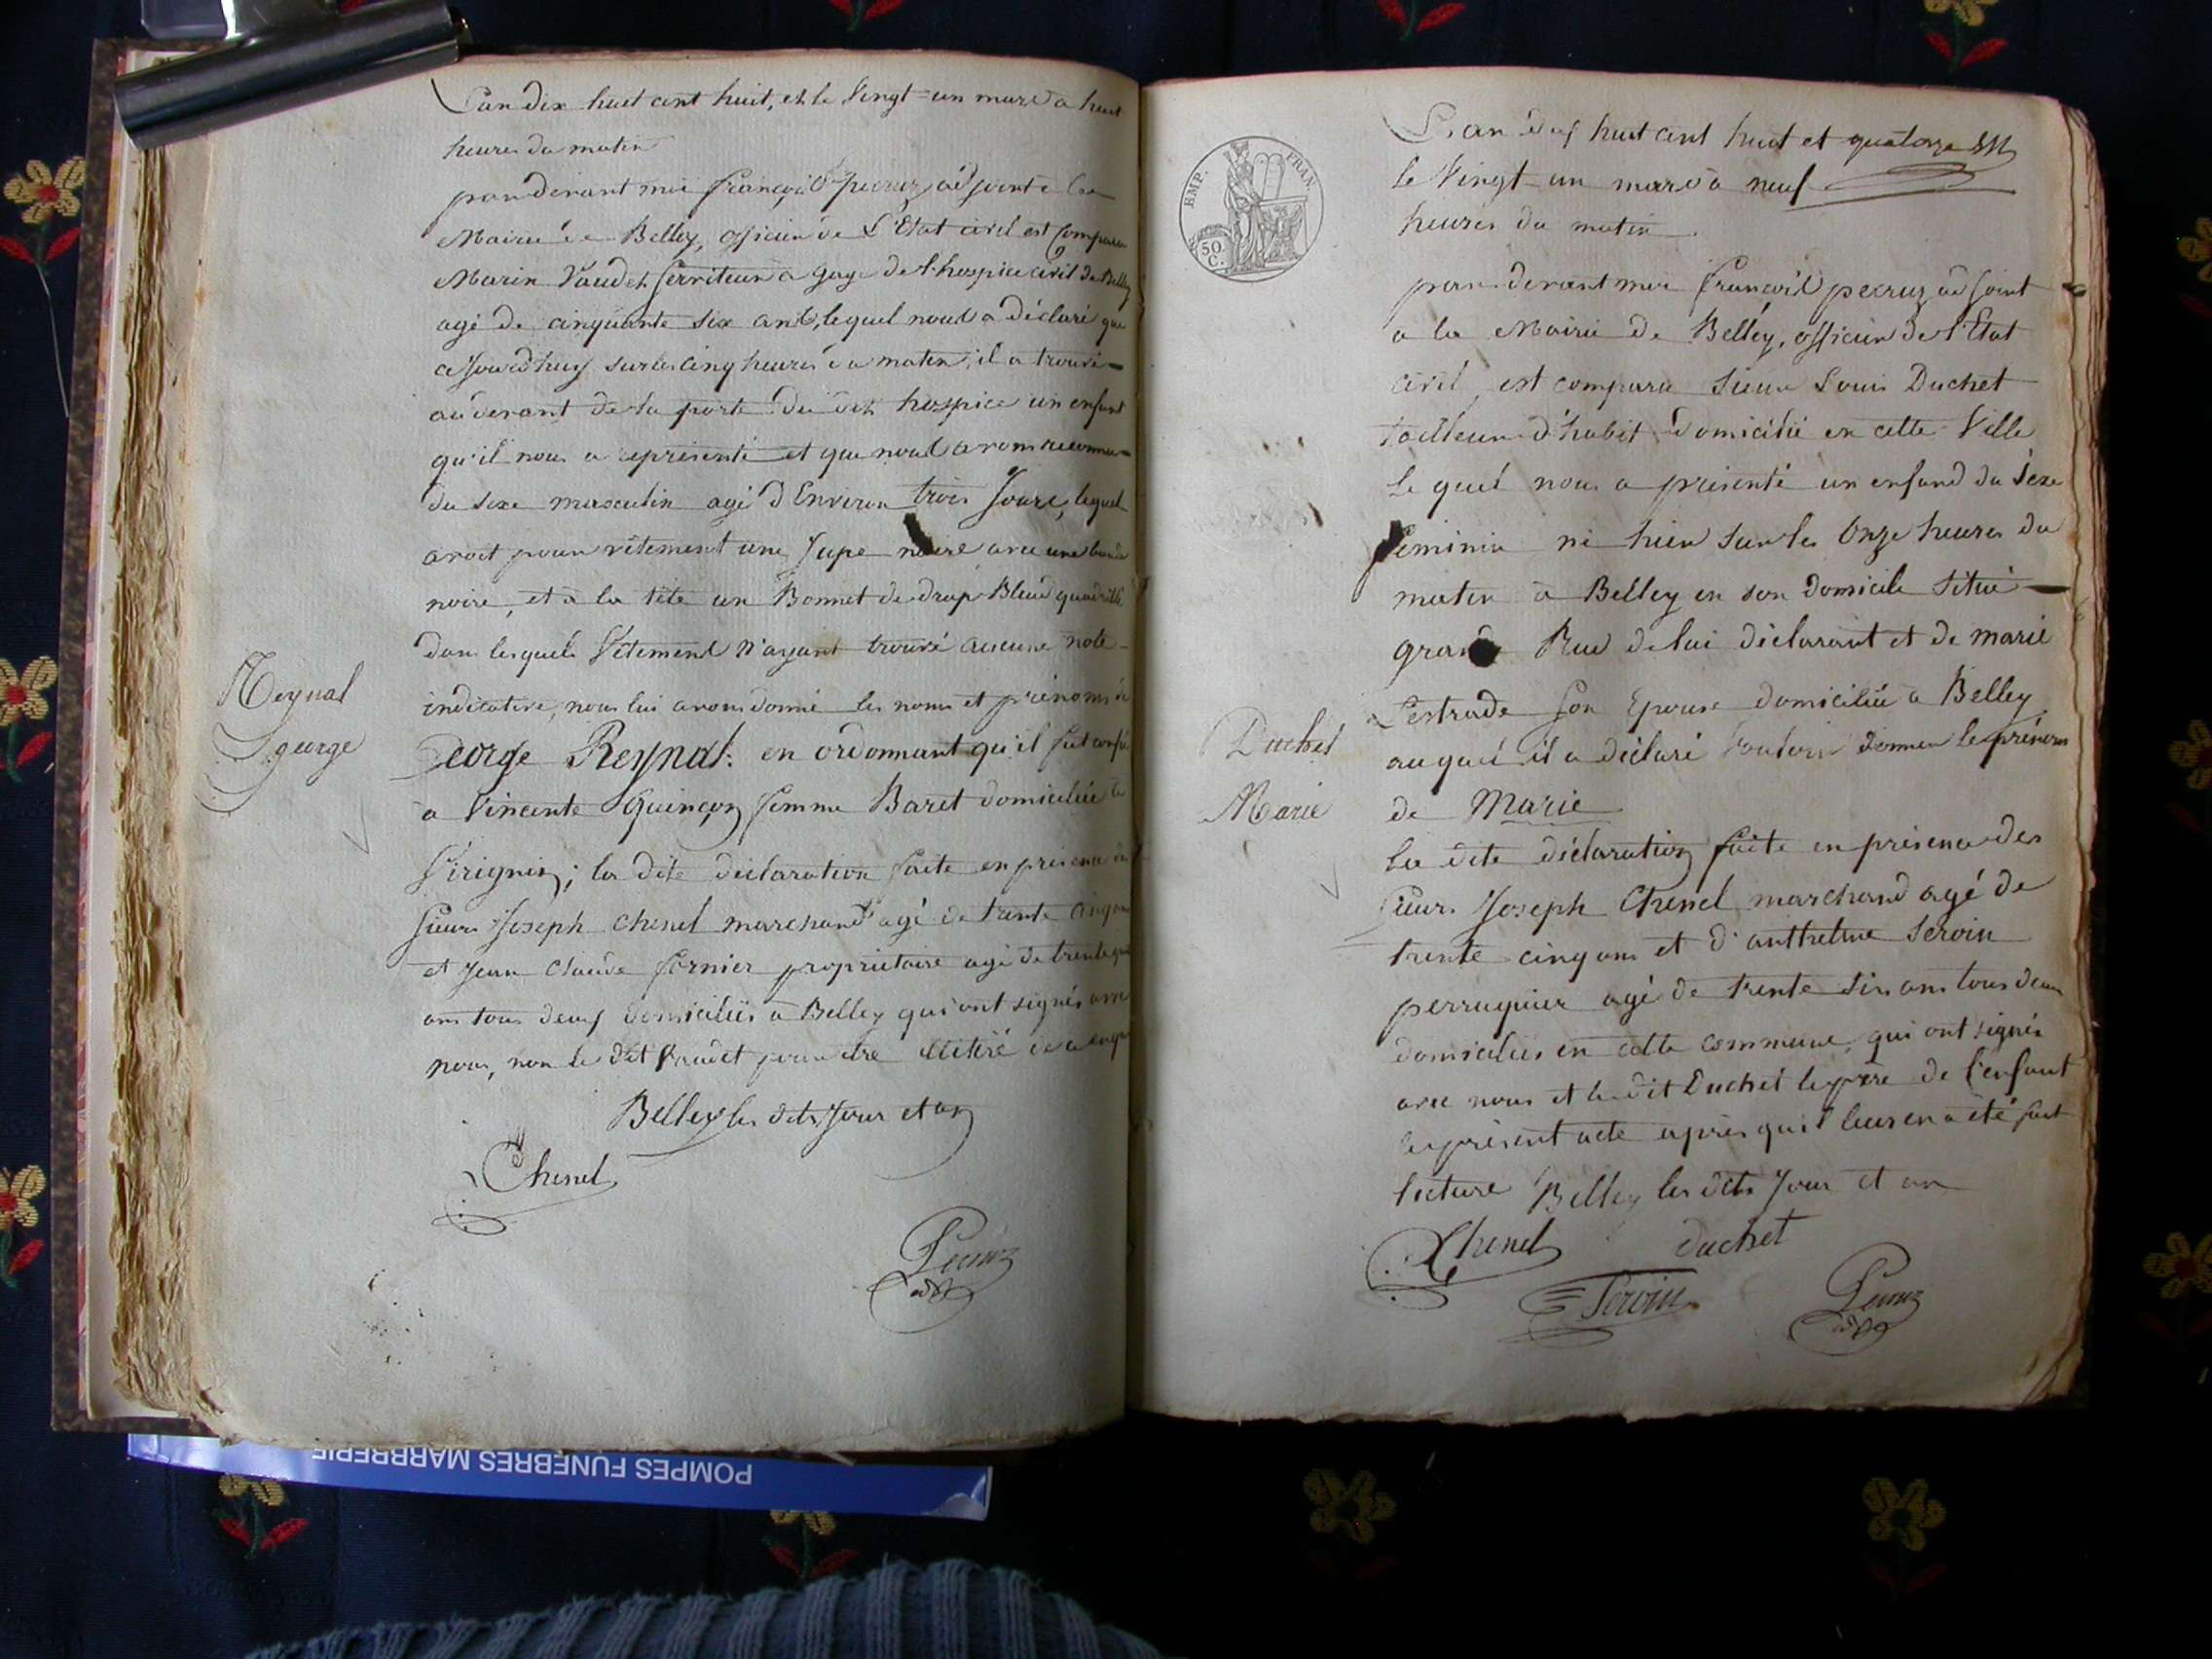 L'an dix huit cent huit, et le Vingt-un mars a huit
heures du matin
par devant moi françois pecruz adjoint a la
Mairie de Belley, officier de L'Etat civil est Comparu
Marin Vaudet Serviteur a gage de l'hospice civil de Belley
agé de cinquante six ans, lequel nous a déclaré que
ajourdhuy sur les cinq heures du matin, il a trouvé
au devant de la porte du dit hospice un enfant
qu'il nous a représenté et que nous avons reconnu
du sexe masculin agé d'Environ trois Jours, lequel
avoit pour vêtement une Jupe noire avec une bande
noire, et à la tête un Bonnet de drap Bleud quadrillé
dans lesquels Vêtemens N'ayant trouvé aucune note
indicative, nous lui avons donné les noms et prénoms de
George Reynal. en ordonnant qu'il fut confié
Reynal
george
à Vincente Guinçon femme Baret domiciliée à
Virignin; la dite déclaration faite en présence des
Sieurs Joseph Chenel marchand agé de trente cinq ans
et Jean Claude fornier propriétaire agé de trente
ans tous deux domiciliés à Belley qui ont signés avec
nous, non le dit Vaudet pour être illitéré de ce enquis
Belley les dits Jour et an
Chenel
Pecruz
adj
EMP. FRAN.
50
C.
L'an dix huit cent huit et
le Vingt-un mars à neuf
heures du matin.
par devant moi françois pecruz adjoint
a la Mairie de Belley, officier de l'Etat
civil, est comparu Sieur Louis Duchet
tailleur d'habit domicilié en cette Ville
le quel nous a présenté un enfand du Sexe
feminin né hier sur les Onze heures du
matin à Belley en son domicile Situé
grande Rue de lui déclarant et de marie
Lestrade son Epouse domiciliée à Belley
auquel il a déclaré vouloir donner le prénom
Duchet
Marie
de Marie
la dite déclaration faite en présence des
Sieurs Joseph Chenel marchand agé de
trente cinq ans et d'anthelme Servin
perruquier agé de trente six ans tous deux
domiciliés en cette commune, qui ont signés
avec nous et le dit Duchet le père de l'enfant
le présent acte après qu'il leur en a été fait
lecture Belley les dits Jour et an
Chenel duchet
Servin Pecruz
adj
POMPES FUNEBRES MARBRERIE